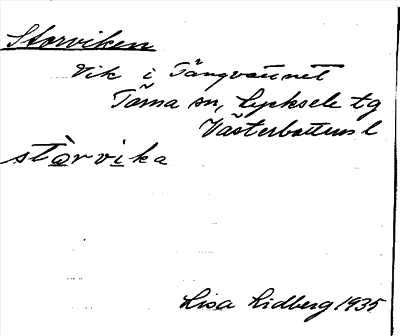 Storviken
Vik i Tängvattnet
Tärna sn, Lycksele tg
Västerbottens l
stòrvika
Lisa Lidberg 1935